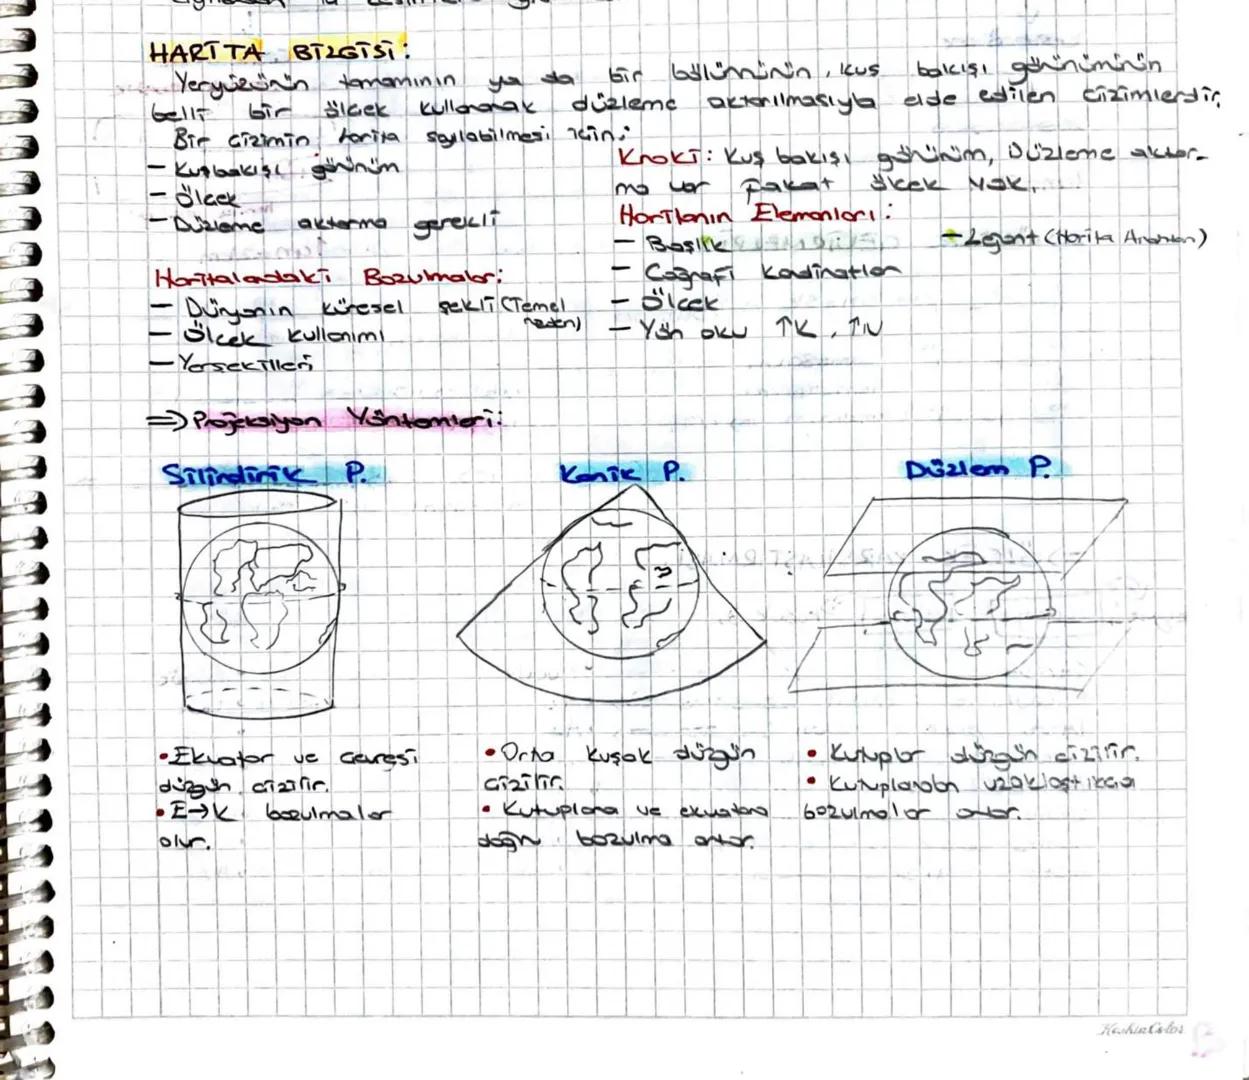 HARİTA BİLGİSİ:
Yeryüzünün tamamının ya da bir bölümünün, kuş bakışı görünümünün
belli bir ölçek kullanarak düzleme aktarılmasıyla elde edilen çizimlerdir.
Bir çizimin harita sayılabilmesi için;
- Kuşbakışı görünüm
- Ölçek
- Düzleme aktarma gerekli
Kroki: Kuş bakışı görünüm, Düzleme aktar-
ma var fakat ölçek yok.
Haritanın Elemanları:
- Başlık
- Lejant (Harita Anahtarı)
- Coğrafi Koordinatlar
- Ölçek
- Yön oku ↑K, ↑N
Haritalardaki Bozulmalar:
- Dünyanın küresel şekli (Temel
neden)
- Ölçek kullanımı
- Yerşekilleri
⇒ Projeksiyon Yöntemleri:
Silindirik P.
Konik P.
Düzlem P.
• Ekvator ve çevresi
düzgün çizilir.
• E→K bozulmalar
olur.
• Orta kuşak düzgün
çizilir.
• Kutuplara ve ekvatora
doğru bozulma artar.
• Kutuplar düzgün çizilir.
• Kutuplardan uzaklaştıkça
bozulmalar artar.
KeskinColor